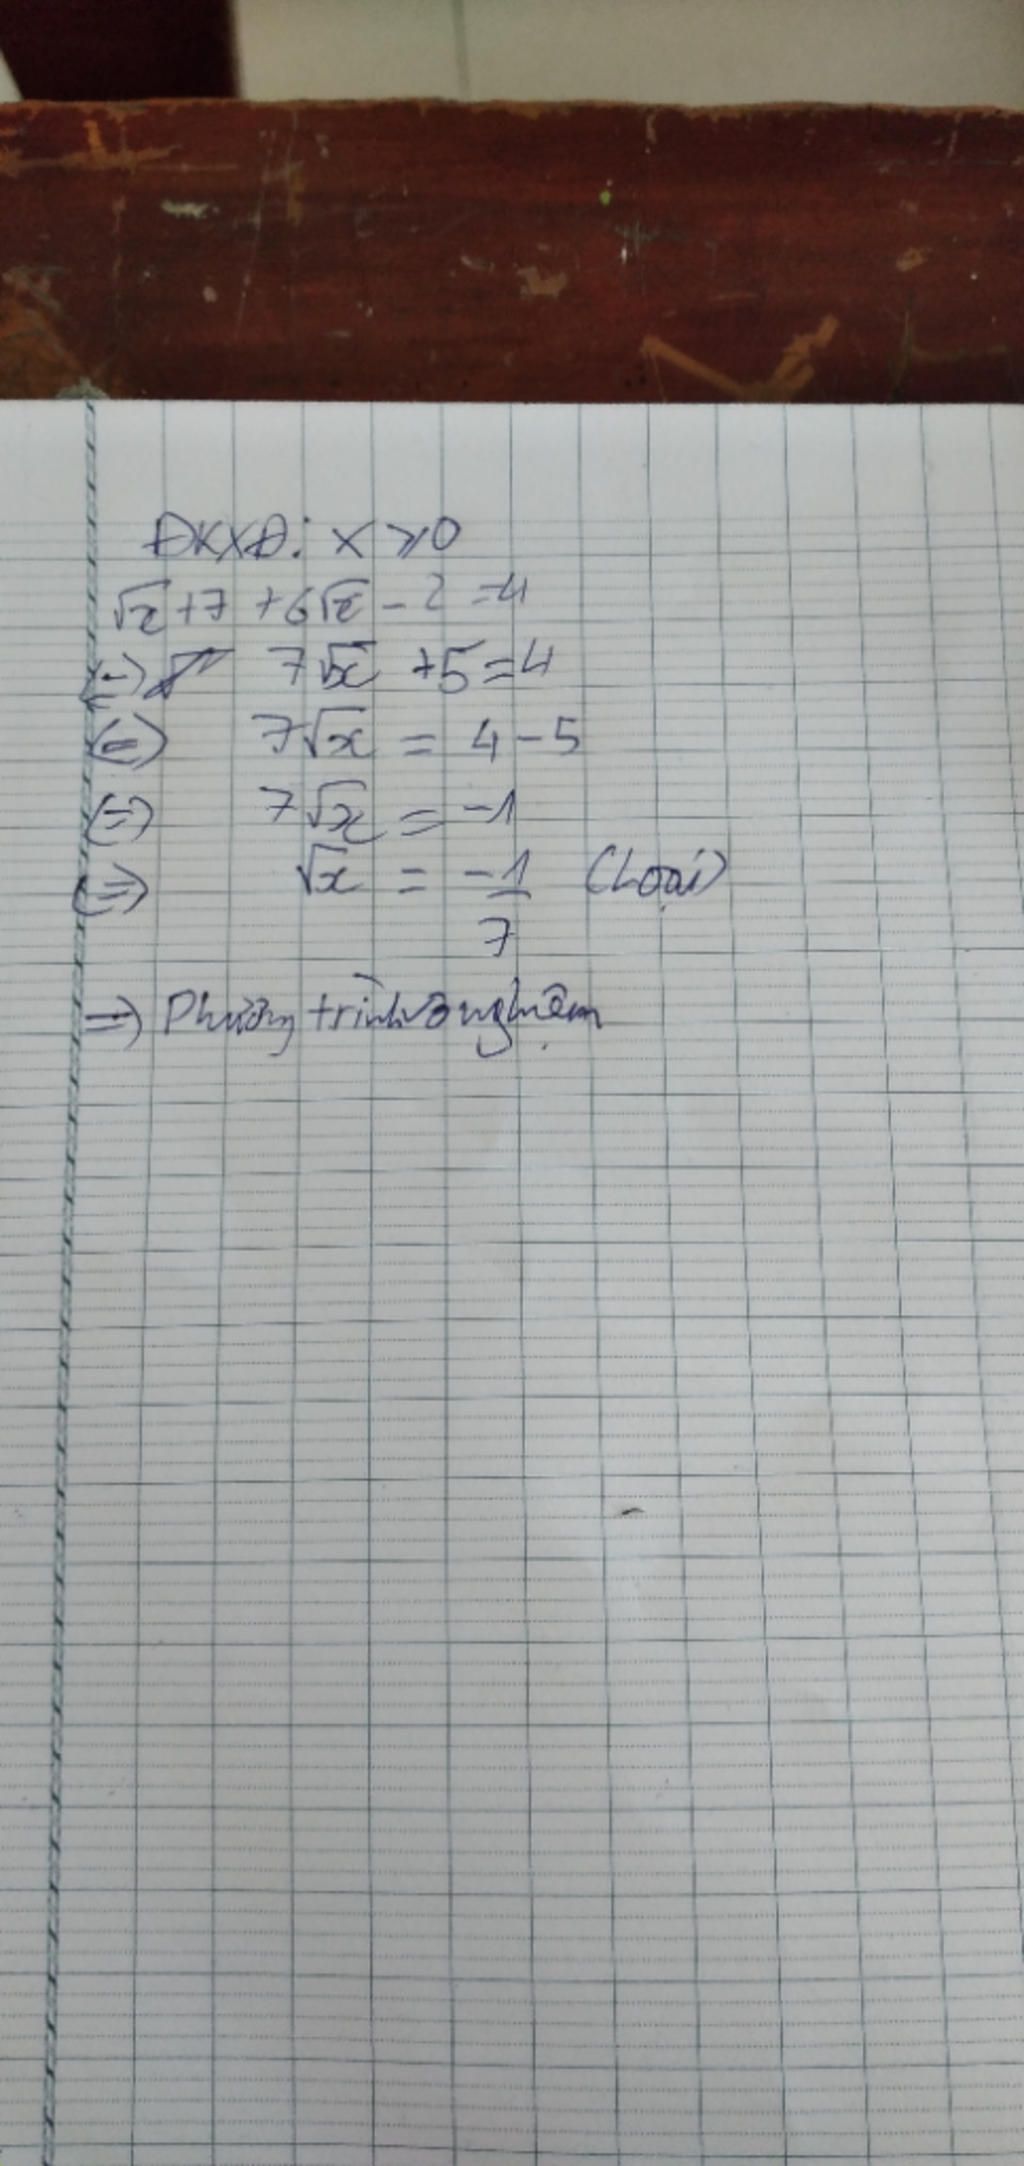 ĐKXĐ: x ≥ 0
√x + 7 + 6√x - 2 = 4
(=) 7√x + 5 = 4
(=) 7√x = 4 - 5
(=) 7√x = -1
(=) √x = -1/7 (Loại)
=> Phương trình vô nghiệm